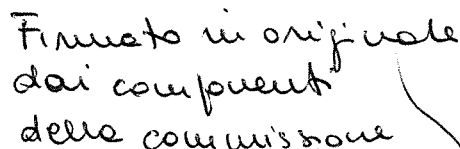 Firmato in originale
dai componenti
della commissione